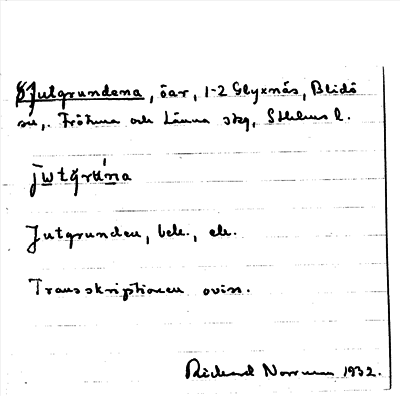 §Jutgrundena, öar, 1-2 Glyxnäs, Blidö
sn,. Frötuna och Länna skg, Sthlms l.
jutgruna
Jutgrunden, beb., ek.
Transskriptionen oviss.
Rickard Norrman 1932.